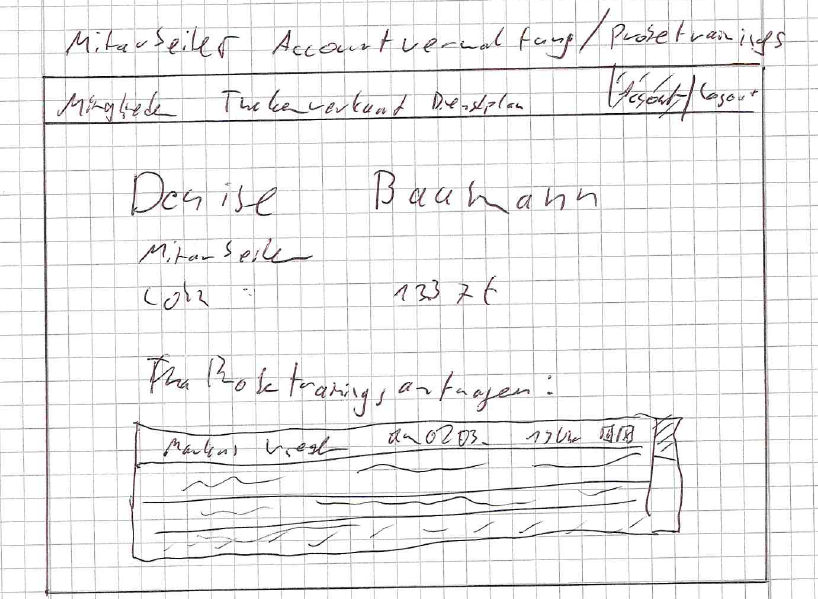 Mitarbeiter Accountverwaltung/Probetrainings
Mitglieder Thekenverkauf Dienstplan Account/Logout
Denise Baumann
Mitarbeiter
Lohn : 1337€
Ihre Probetrainingsanfragen:
Markus am 02.03. 17 Uhr